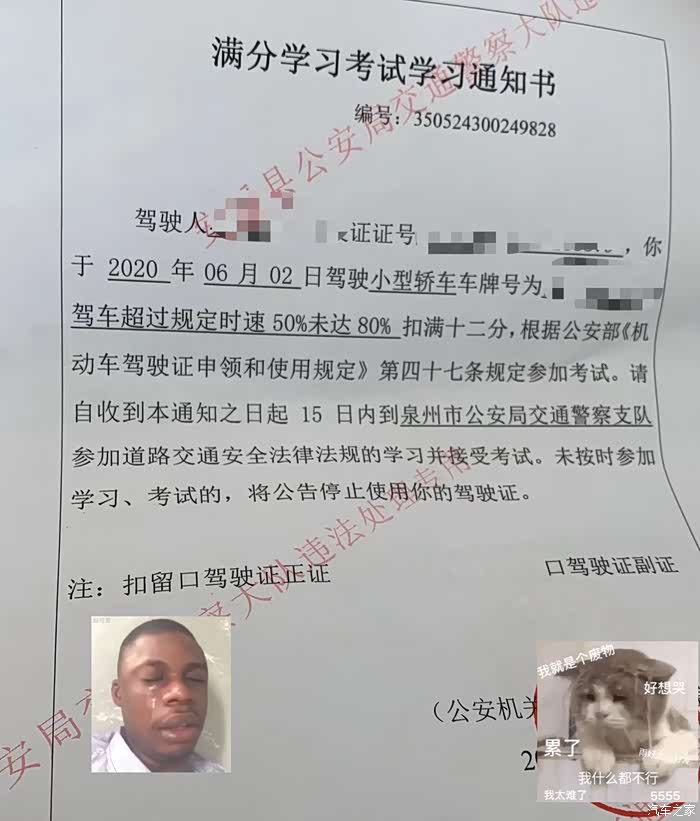 满分学习考试学习通知书
编号：350524300249828
驾驶人 证证号 ，你
于 2020 年 06 月 02 日驾驶小型轿车车牌号为
驾车超过规定时速 50%未达 80% 扣满十二分，根据公安部《机
动车驾驶证申领和使用规定》第四十七条规定参加考试。请
自收到本通知之日起 15 日内到泉州市公安局交通警察支队
参加道路交通安全法律法规的学习并接受考试。未按时参加
学习、考试的，将公告停止使用你的驾驶证。
注：扣留口驾驶证正证 口驾驶证副证
（公安机关
20
县公安局交通警察大队违
大队违法处理专用
安 局
我就是个废物
好想哭
累了
我什么都不行
我太难了 5555
汽车之家